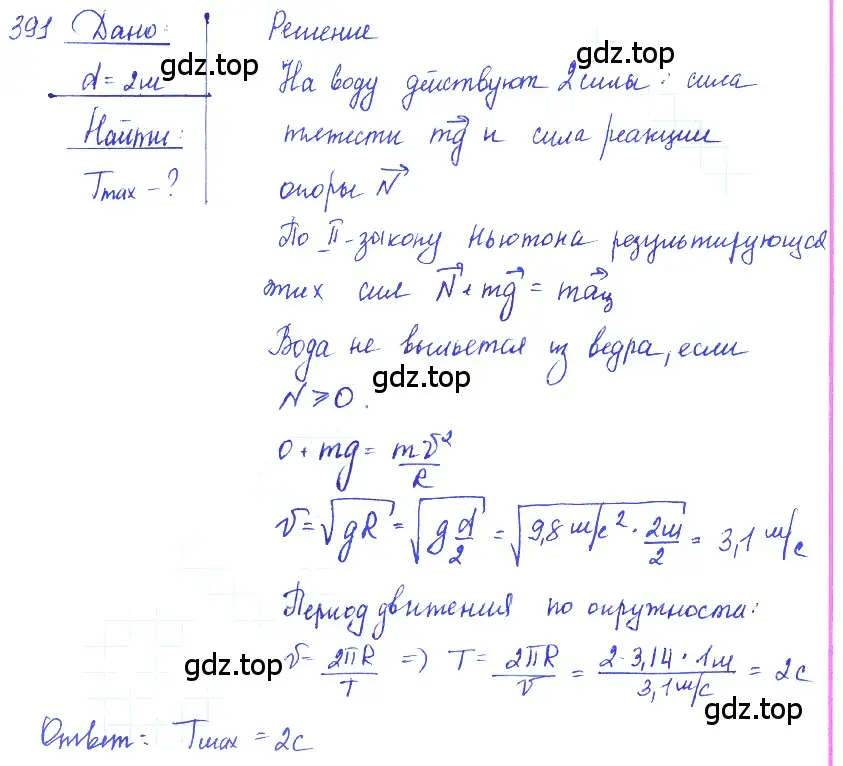 391 Дано: Решение
d = 2м gdz.top На воду действуют 2 силы: сила gdz.top
Найти: тяжести mg⃗ и сила реакции
Tmax - ? опоры N⃗
По II-закону Ньютона результирующая
этих сил N⃗ + mg⃗ = ma⃗ц
Вода не выльется из ведра, если
gdz.top
N ⩾ 0.
0 + mg = mv²/R
v = √gR = √(g d/2) = √(9,8 м/с² · 2м/2) = 3,1 м/с
Период движения по окружности:
v = 2πR/T => T = 2πR/v = 2·3,14·1м/3,1 м/с = 2с
gdz.top gdz.top
Ответ: Tmax = 2с